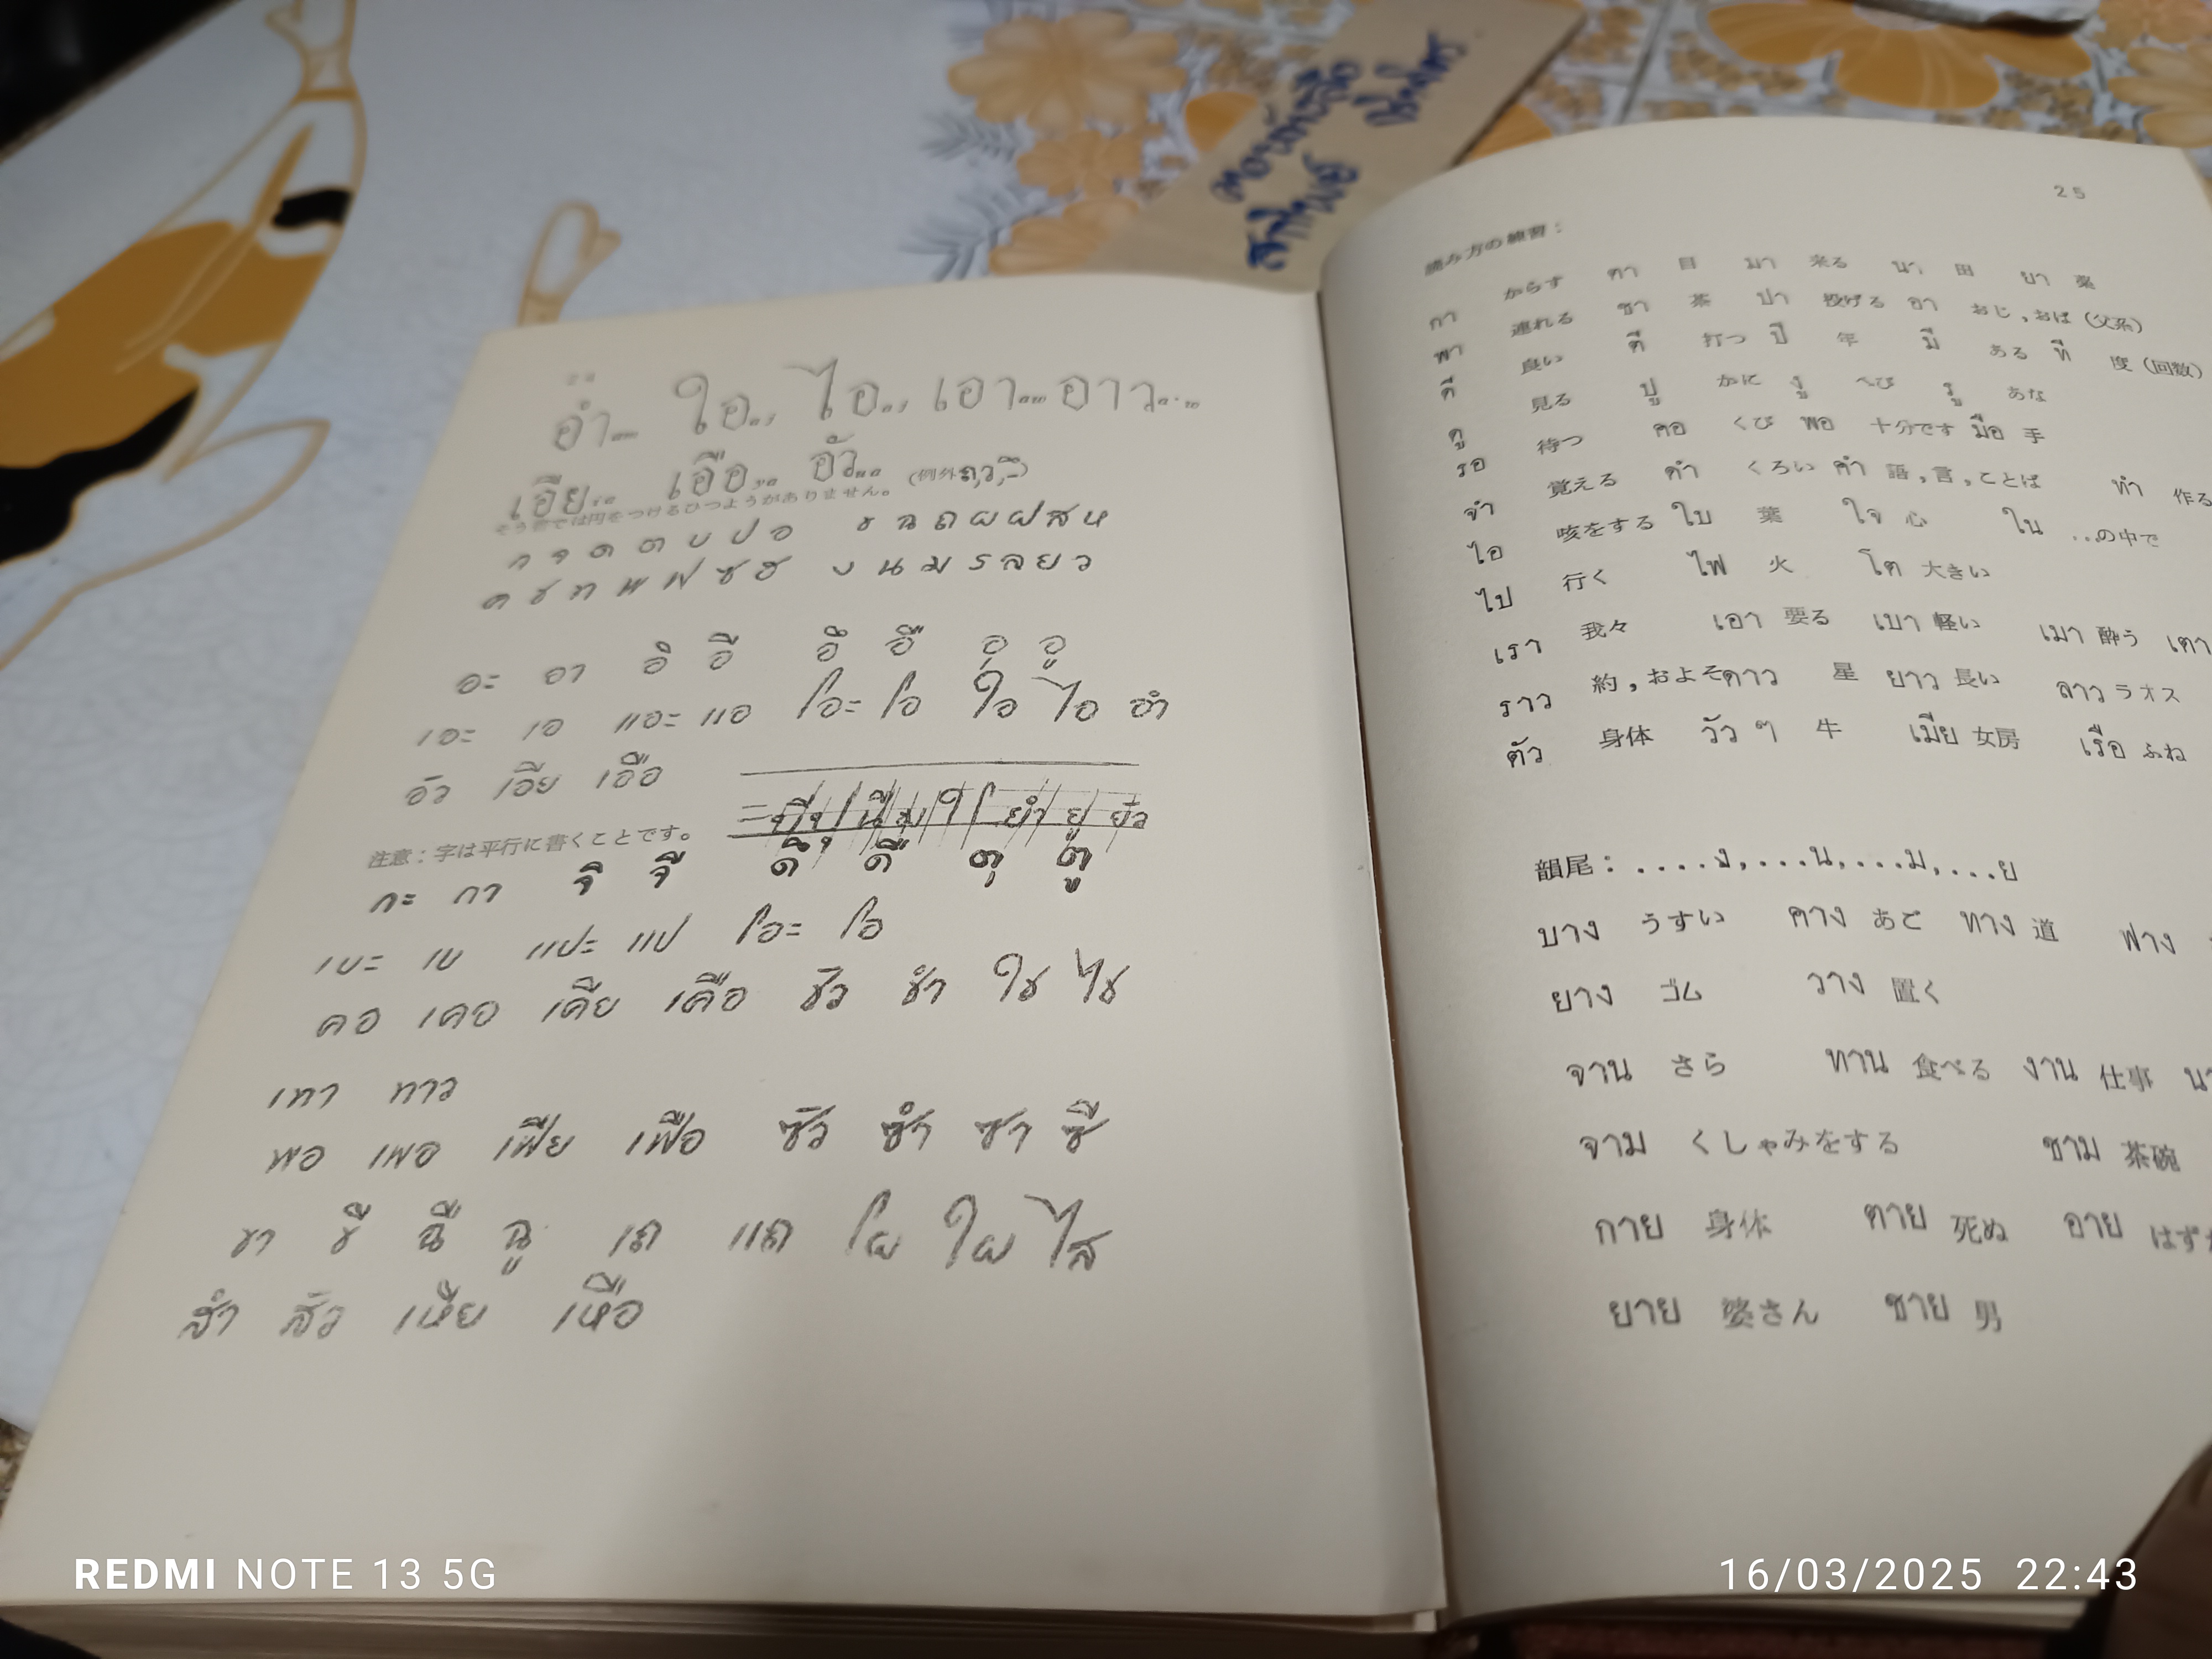 24
อำ.. ใอ.. ไอ.. เอา.. อาว..
เอีย.. เอือ.. อัว.. (例外
そう書では円をつけるひつようがありません。
ก จ ด ต บ ป อ ข ฉ ถ ผ ฝ ส ห
ค ช ท พ ฟ ซ ฮ ง น ม ร ล ย ว
อะ อา อิ อี อึ อื อุ อู
เอะ เอ แอะ แอ โอะ โอ ใอ ไอ อำ
อัว เอีย เอือ
注意：字は平行に書くことです。
กะ กา จิ จี ดึ ดื ตุ ตู
เบะ เบ แปะ แป โอะ โอ
คอ เคอ เคีย เคือ ชัว ชำ ใช ไช
เทา ทาว
พอ เพอ เฟีย เฟือ ซัว ซำ ซา ซี
ขา ขี ฉี ฉู เถ แถ โผ ใผ ไส
สำ สัว เหีย เหือ
25
読み方の練習：
กา からす ตา 目 มา 来る นา 田 ยา 薬
พา 連れる ชา 茶 ปา 投げる อา おじ,おば (父系)
ดี 良い ตี 打つ ปี 年 มี ある ที 度 (回数)
ดู 見る ปู かに งู へび รู あな
รอ 待つ คอ くび พอ 十分です มือ 手
จำ 覚える ดำ くろい คำ 語,言,ことば ทำ 作る
ไอ 咳をする ใบ 葉 ใจ 心 ใน ..の中で
ไป 行く ไฟ 火 โต 大きい
เรา 我々 เอา 要る เบา 軽い เมา 酔う เตา
ราว 約,およそ ดาว 星 ยาว 長い ลาว ラオス
ตัว 身体 วัว ๆ 牛 เมีย 女房 เรือ ふね
韻尾：....ง,...น,...ม,...ย
บาง うすい คาง あご ทาง 道 ฟาง
ยาง ゴム วาง 置く
จาน さら ทาน 食べる งาน 仕事
จาม くしゃみをする ชาม 茶碗
กาย 身体 ตาย 死ぬ อาย はず
ยาย 婆さん ชาย 男
REDMI NOTE 13 5G
16/03/2025 22:43